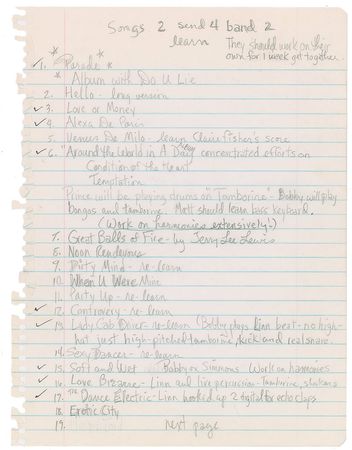 Songs 2 send 4 band 2
learn
They should work on their
own for 1 week get together
1. Parade
Album with Do U Lie
2. Hello - long version
3. Love or Money
4. Alexa De Paris
5. Venus De Milo - learn Clare Fisher's score
6. "Around the World in A Day" concentrated efforts on
Condition of the Heart
Temptation
Prince will be playing drums on "Tamborine" - Bobby will play
bongos and tamborine. Matt should learn bass keyboard.
(Work on harmonies extensively!)
7. Great Balls of Fire - by Jerry Lee Lewis
8. Noon Rendevous
9. Dirty Mind - re-learn
10. When U Were Mine
11. Party Up - re-learn
12. Controversy - re-learn
13. Lady Cab Driver - re-learn (Bobby plays Linn beat - no high-
hat just high-pitched tamborine, kick and real snare.
14. Sexy Dancer - re-learn
15. Soft and Wet Bobby on Simmons Work on harmonies
16. Love Bizarre - Linn and live percussion - Tamborine, shakers
17. The Dance Electric - Linn hooked up 2 digital for echo claps
18. Erotic City
19.
next page